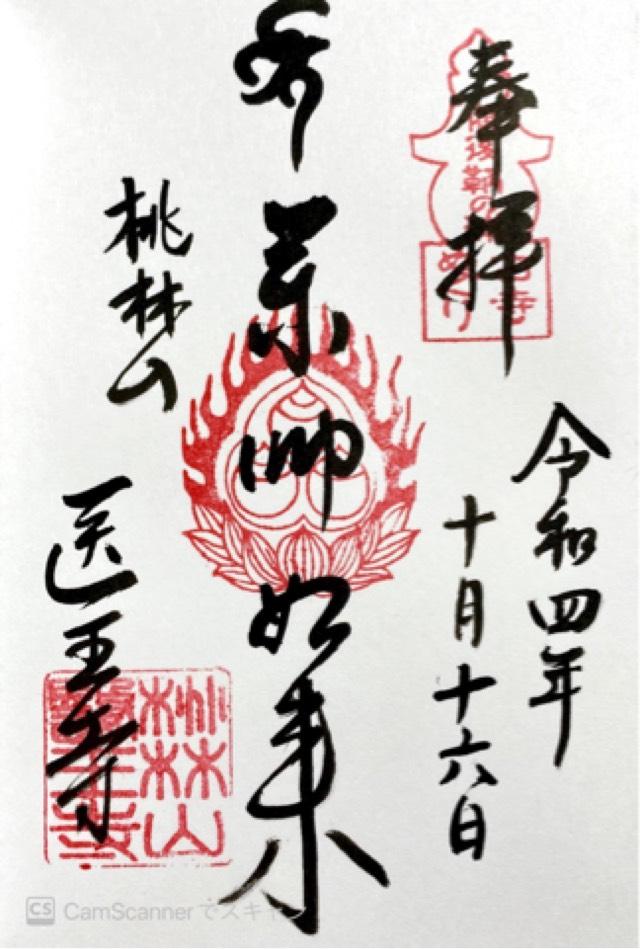 奉拝
備後鞆の浦
古寺
めぐり
令和四年
十月十六日
薬師如来
桃林山
医王寺
桃林山
醫王寺
CS CamScannerでスキャン